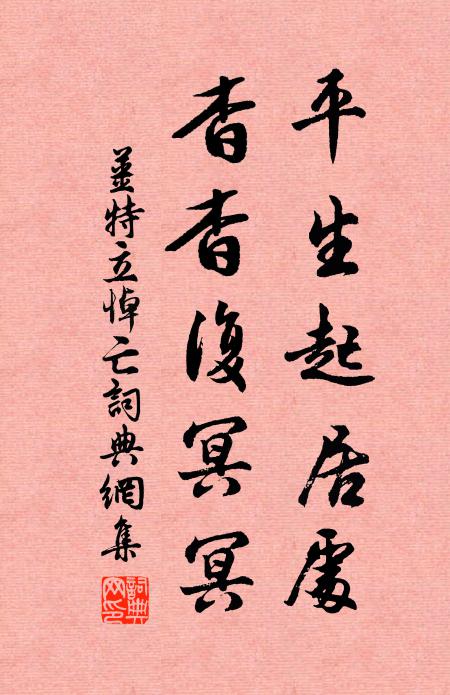 平生起居處
杳杳復冥冥
薑特立悼亡詞典網集
詞典网印